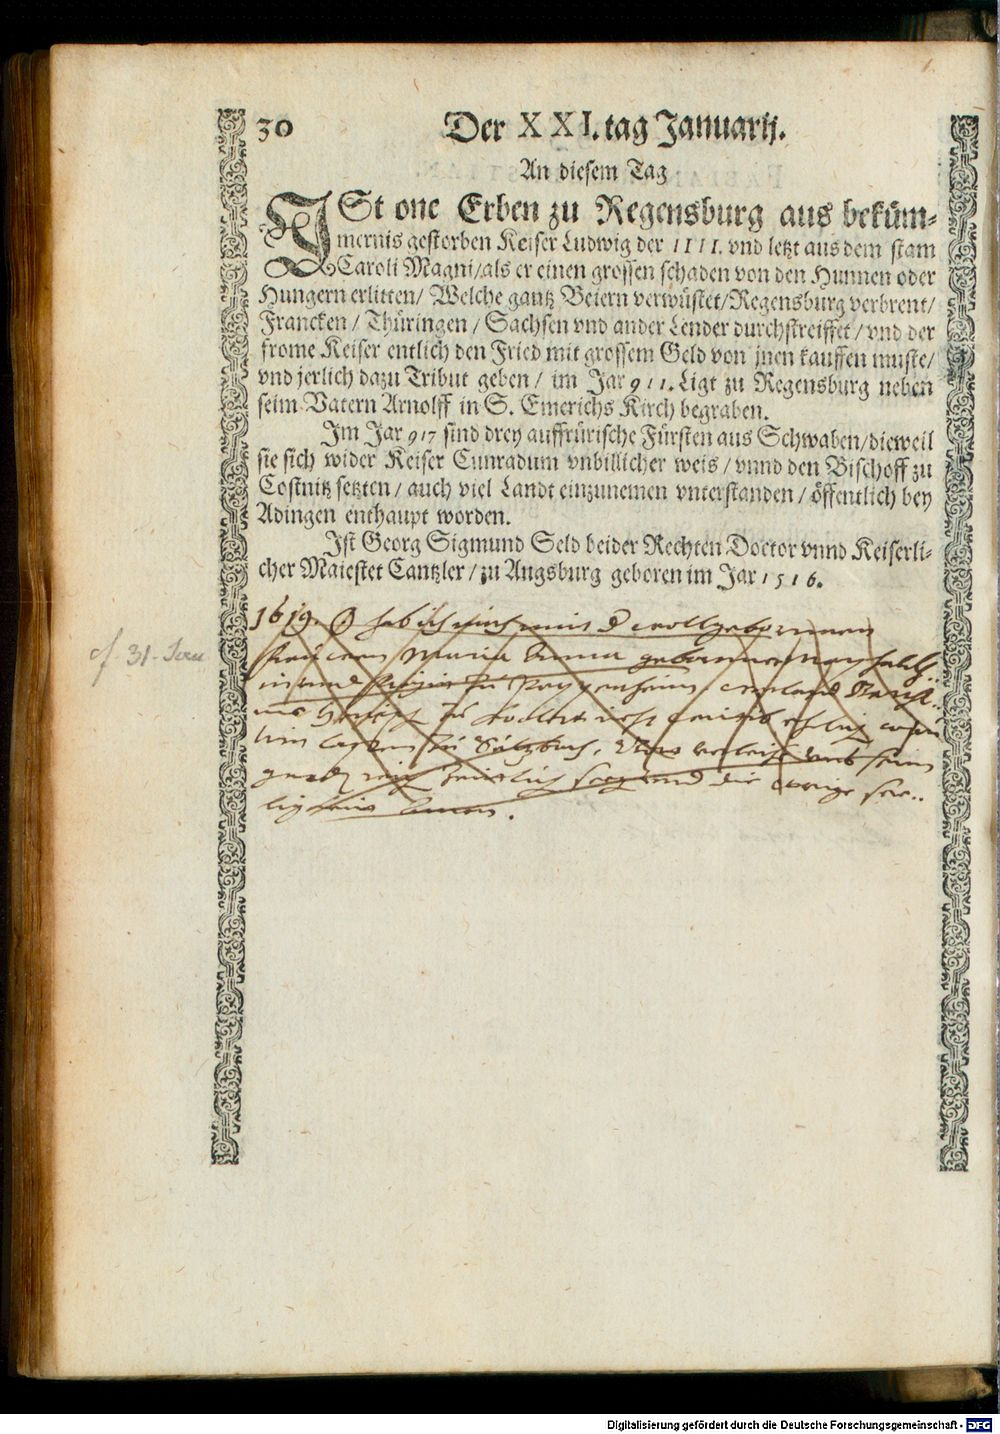 30 Der XXI. tag Januarij.
An diesem Tag
ISt one Erben zu Regensburg aus beküm-
mernis gestorben Keiser Ludwig der IIII. vnd letzt aus dem stam
Caroli Magni/als er einen grossen schaden von den Hunnen oder
Hungern erlitten/ Welche gantz Beiern verwüstet/Regensburg verbrent/
Francken / Thüringen / Sachsen vnd ander Lender durchstreiffet / vnd der
frome Keiser entlich den Fried mit grossem Geld von jnen kauffen muste/
vnd jerlich dazu Tribut geben / im Jar 911. Ligt zu Regensburg neben
seim Vatern Arnolff in S. Emerichs Kirch begraben.
Im Jar 917 sind drey auffrürische Fürsten aus Schwaben/dieweil
sie sich wider Keiser Cunradum vnbillicher weis / vnnd den Bischoff zu
Costnitz setzten / auch viel Landt einzunemen vnterstanden / öffentlich bey
Adingen enthaupt worden.
Ist Georg Sigmund Seld beider Rechten Doctor vnnd Keiserli-
cher Maiestet Cantzler / zu Augsburg geboren im Jar 1516.
1619. hab ich mich mit d wollgebornnen
Maria Anna
cf. 31. Jan
zu Pappenheim
zu Sultzbach,
vnd die ewige see..
ligkeit Amen.
Digitalisierung gefördert durch die Deutsche Forschungsgemeinschaft - DFG